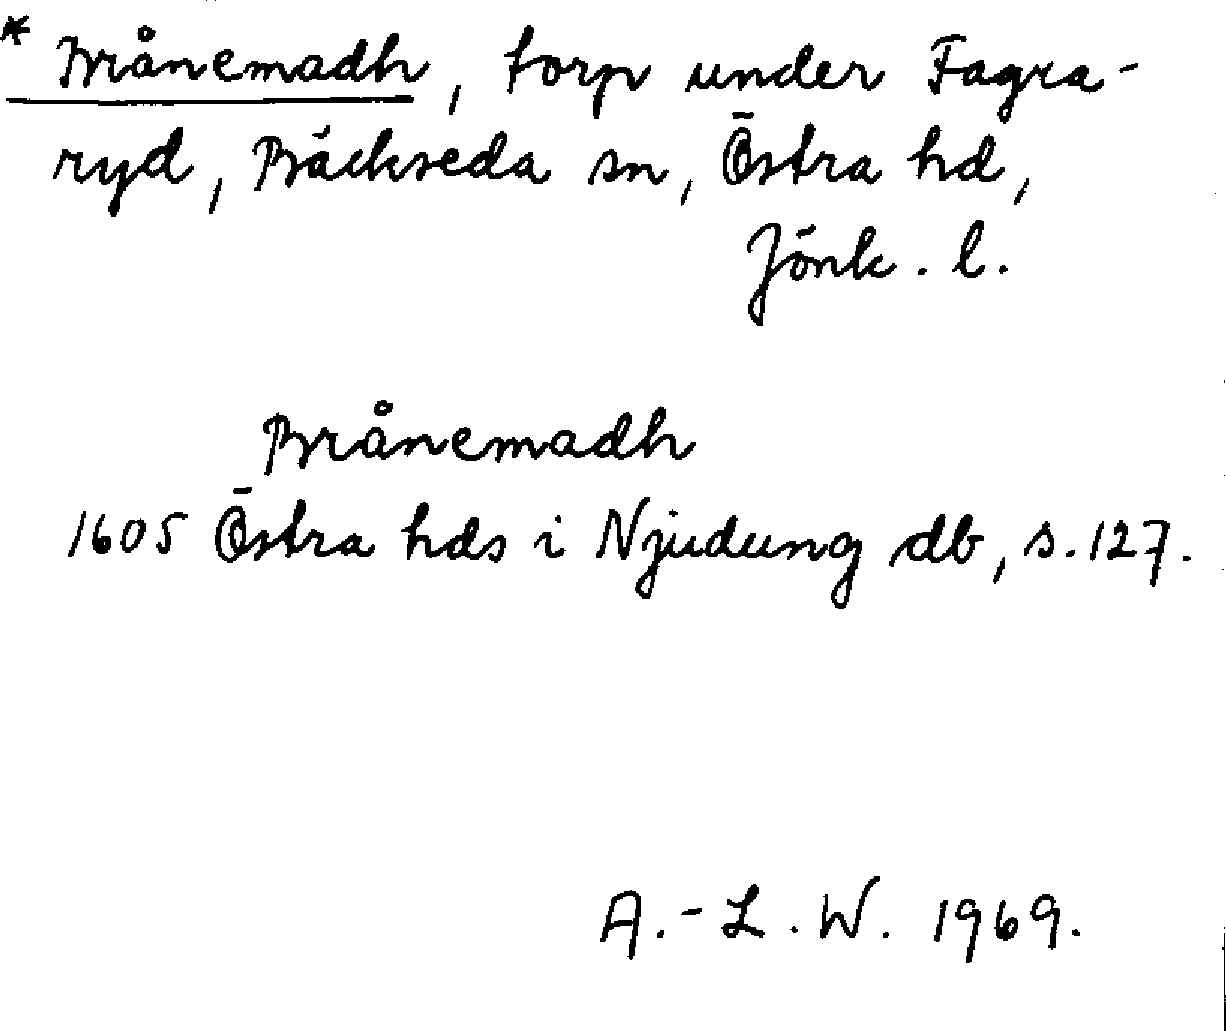 * Brånemadh, torp under Fagra-
ryd, Bäckseda sn, Östra hd,
Jönk. l.
Brånemadh
1605 Östra hds i Njudung db, s. 127.
A.-L. W. 1969.